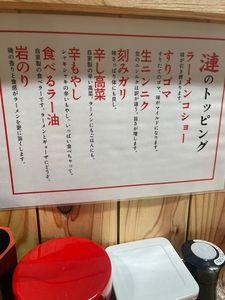 漣のトッピング
ラーメンコショー
味が引き締まります。
すりゴマ
すりたてのゴマ。味がマイルドになります。
生ニンニク
生のニンニクは訳が違う。旨さが増します。
刻みガリ
味はさっぱり、体にも良し。
辛し高菜
自家製の辛い高菜。ラーメンにもごはんにも。
辛もやし
シャキシャキの辛いもやし。いっぱい食べちゃって。
食べるラー油
自家製の食べラーです。ラーメンとギョーザにどうぞ。
岩のり
磯の香りと食感がラーメンを更に旨くします。